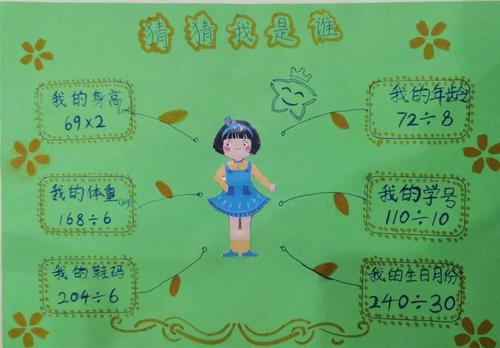 猜猜我是谁
我的身高(cm)
69×2
我的年龄
72÷8
我的体重(kg)
168÷6
我的学号
110÷10
我的鞋码
204÷6
我的生日月份
240÷30